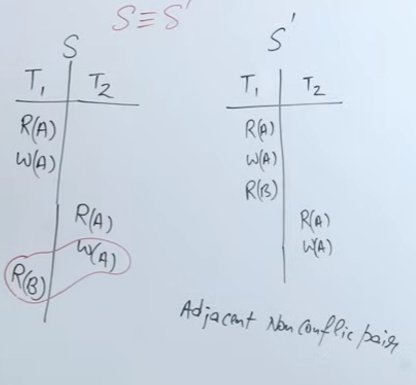 S≡S'
S
T₁ T₂
R(A)
W(A)
R(A)
W(A)
R(B)
S'
T₁ T₂
R(A)
W(A)
R(B)
R(A)
W(A)
Adjacent Non conflic pairs